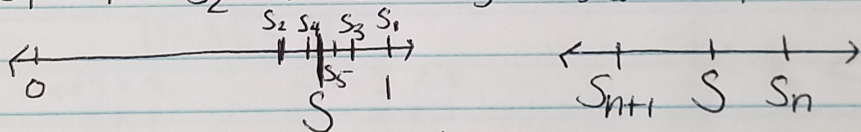 S₂ S₄ S₃ S₁
0 S₅ 1 Sₙ₊₁ S Sₙ
S